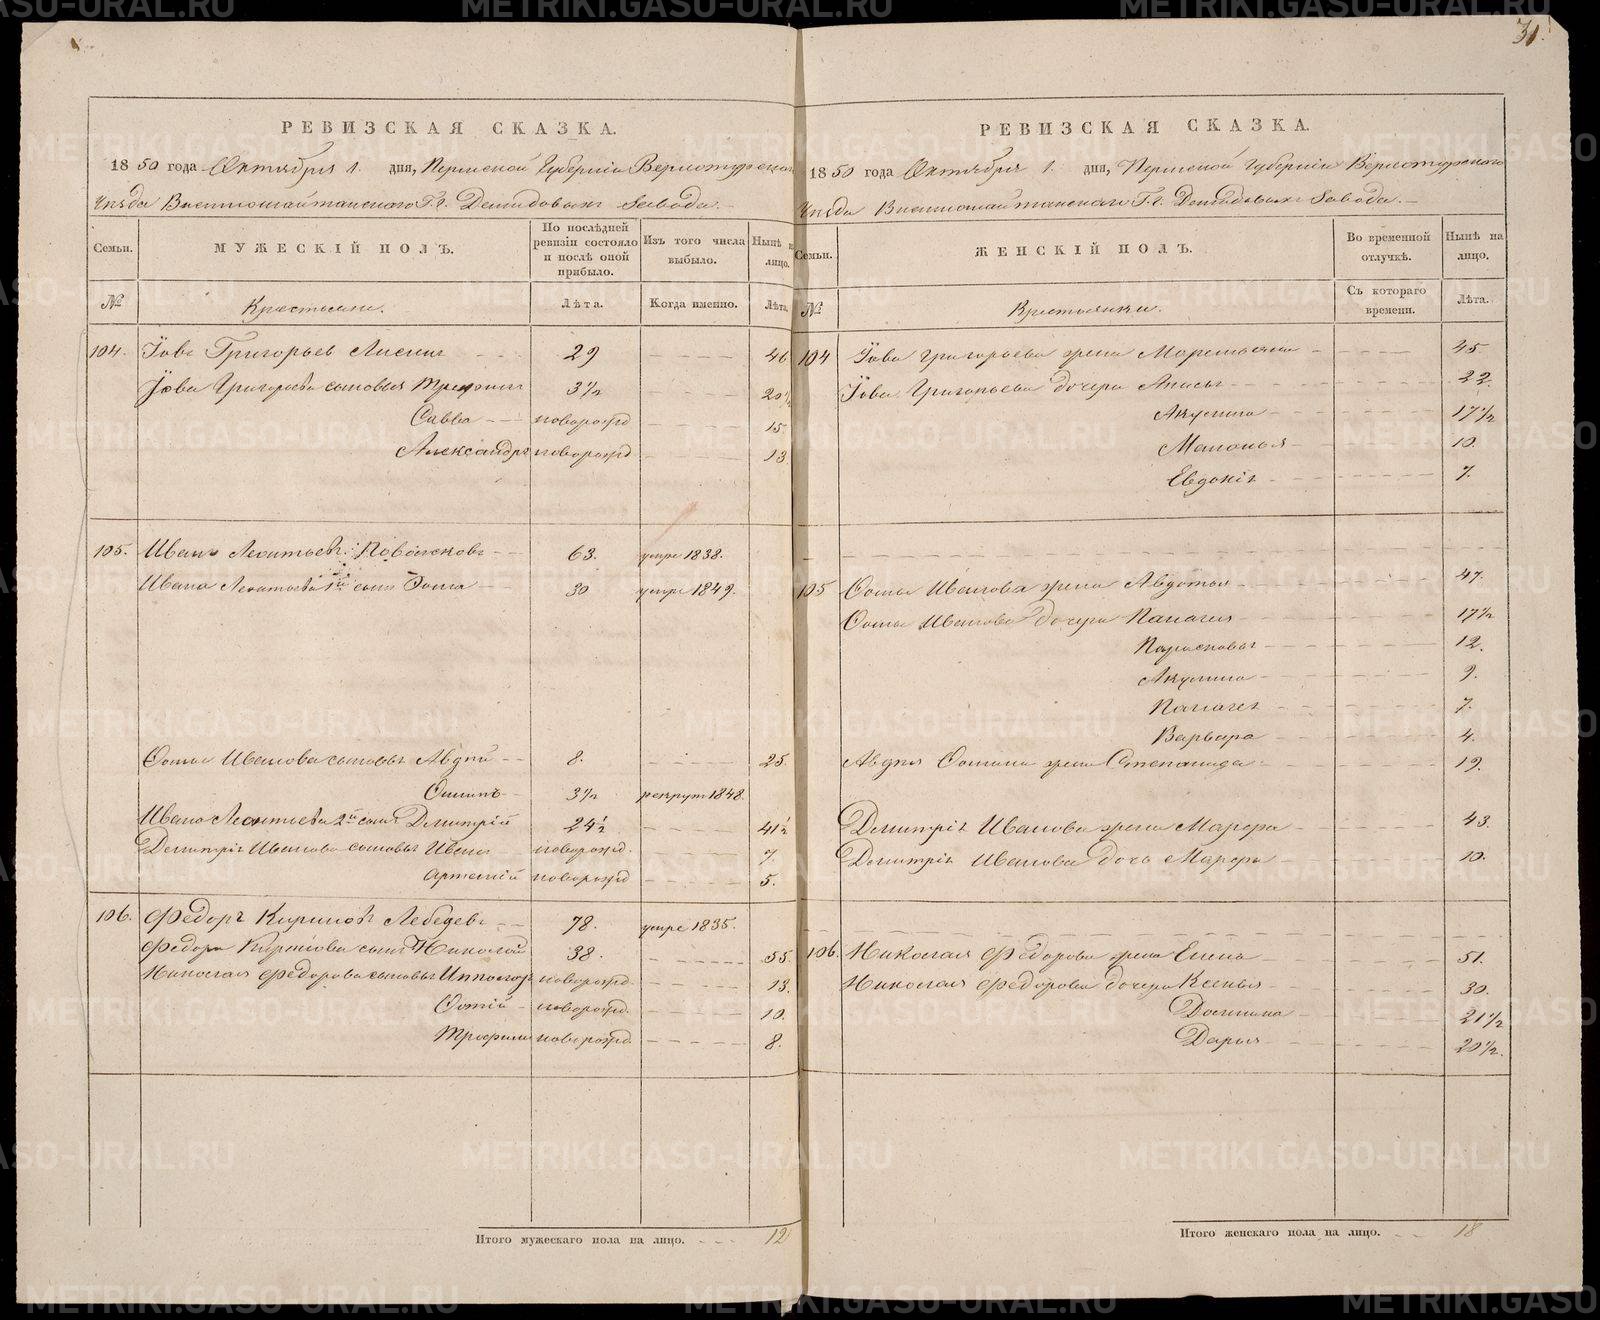 31.
РЕВИЗСКАЯ СКАЗКА.
1850 года Октября 1. дня, Пермской Губерніи Верхотурскаго
Уезда Висимошайтанскаго Г.г. Демидовыхъ Завода.
Семьи.
МУЖЕСКІЙ ПОЛЪ.
По послѣдней ревизіи состояло и послѣ оной прибыло.
Изъ того числа выбыло.
Нынѣ на лицо.
№
Крестьяне.
Лѣта.
Когда именно.
Лѣта.
104. Іовъ Григорьевъ 29 46
Іова Григорьева сыновья 3½ 20½
Савва новорожд 15
Александръ новорожд 13
105. Иванъ Леонтьевъ 63. умре 1838.
Ивана Леонтьева 1й сынъ Фома 30 умре 1849.
Фомы Иванова сыновья Авдѣй 8. 25.
Осипъ 3½ рекрут 1848.
Ивана Леонтьева 2й сынъ Дмитрій 24½ 41½
Дмитрія Иванова сыновья Иванъ новорожд. 7.
Артемій новорожд 5.
106. Федоръ Кириловъ Лебедевъ 78. умре 1835.
Федора Кирилова сынъ Николай 38. 55.
Николая Федорова сыновья новорожд. 13.
Фотій новорожд. 10.
Трофимъ новорожд. 8.
Итого мужескаго пола на лицо. 12
РЕВИЗСКАЯ СКАЗКА.
1850 года Октября 1. дня, Пермской Губерніи Верхотурскаго
Уезда Висимошайтанскаго Г.г. Демидовыхъ Завода.
Семьи.
ЖЕНСКІЙ ПОЛЪ.
Во временной отлучкѣ.
Нынѣ на лицо.
№
Крестьянки.
Съ котораго времени.
Лѣта.
104 Іова Григорьева жена Маремьяна 45
Іова Григорьева дочери 22.
Акулина 17½
Маланья 10.
Евдокія 7.
105 Фомы Иванова жена Авдотья 47.
Фомы Иванова дочери Палагея 17½
Парасковья 12.
Акулина 9.
Палагея 7.
Варвара 4.
Авдѣя Фомина жена Степанида 19.
Дмитрія Иванова жена Марфа 43.
Дмитрія Иванова дочь Марфа 10.
106. Николая Федорова жена Елена 51.
Николая Федорова дочери Ксенья 30.
Домнина 21½
Дарья 20½.
Итого женскаго пола на лицо. 18
METRIKI.GASO-URAL.RU